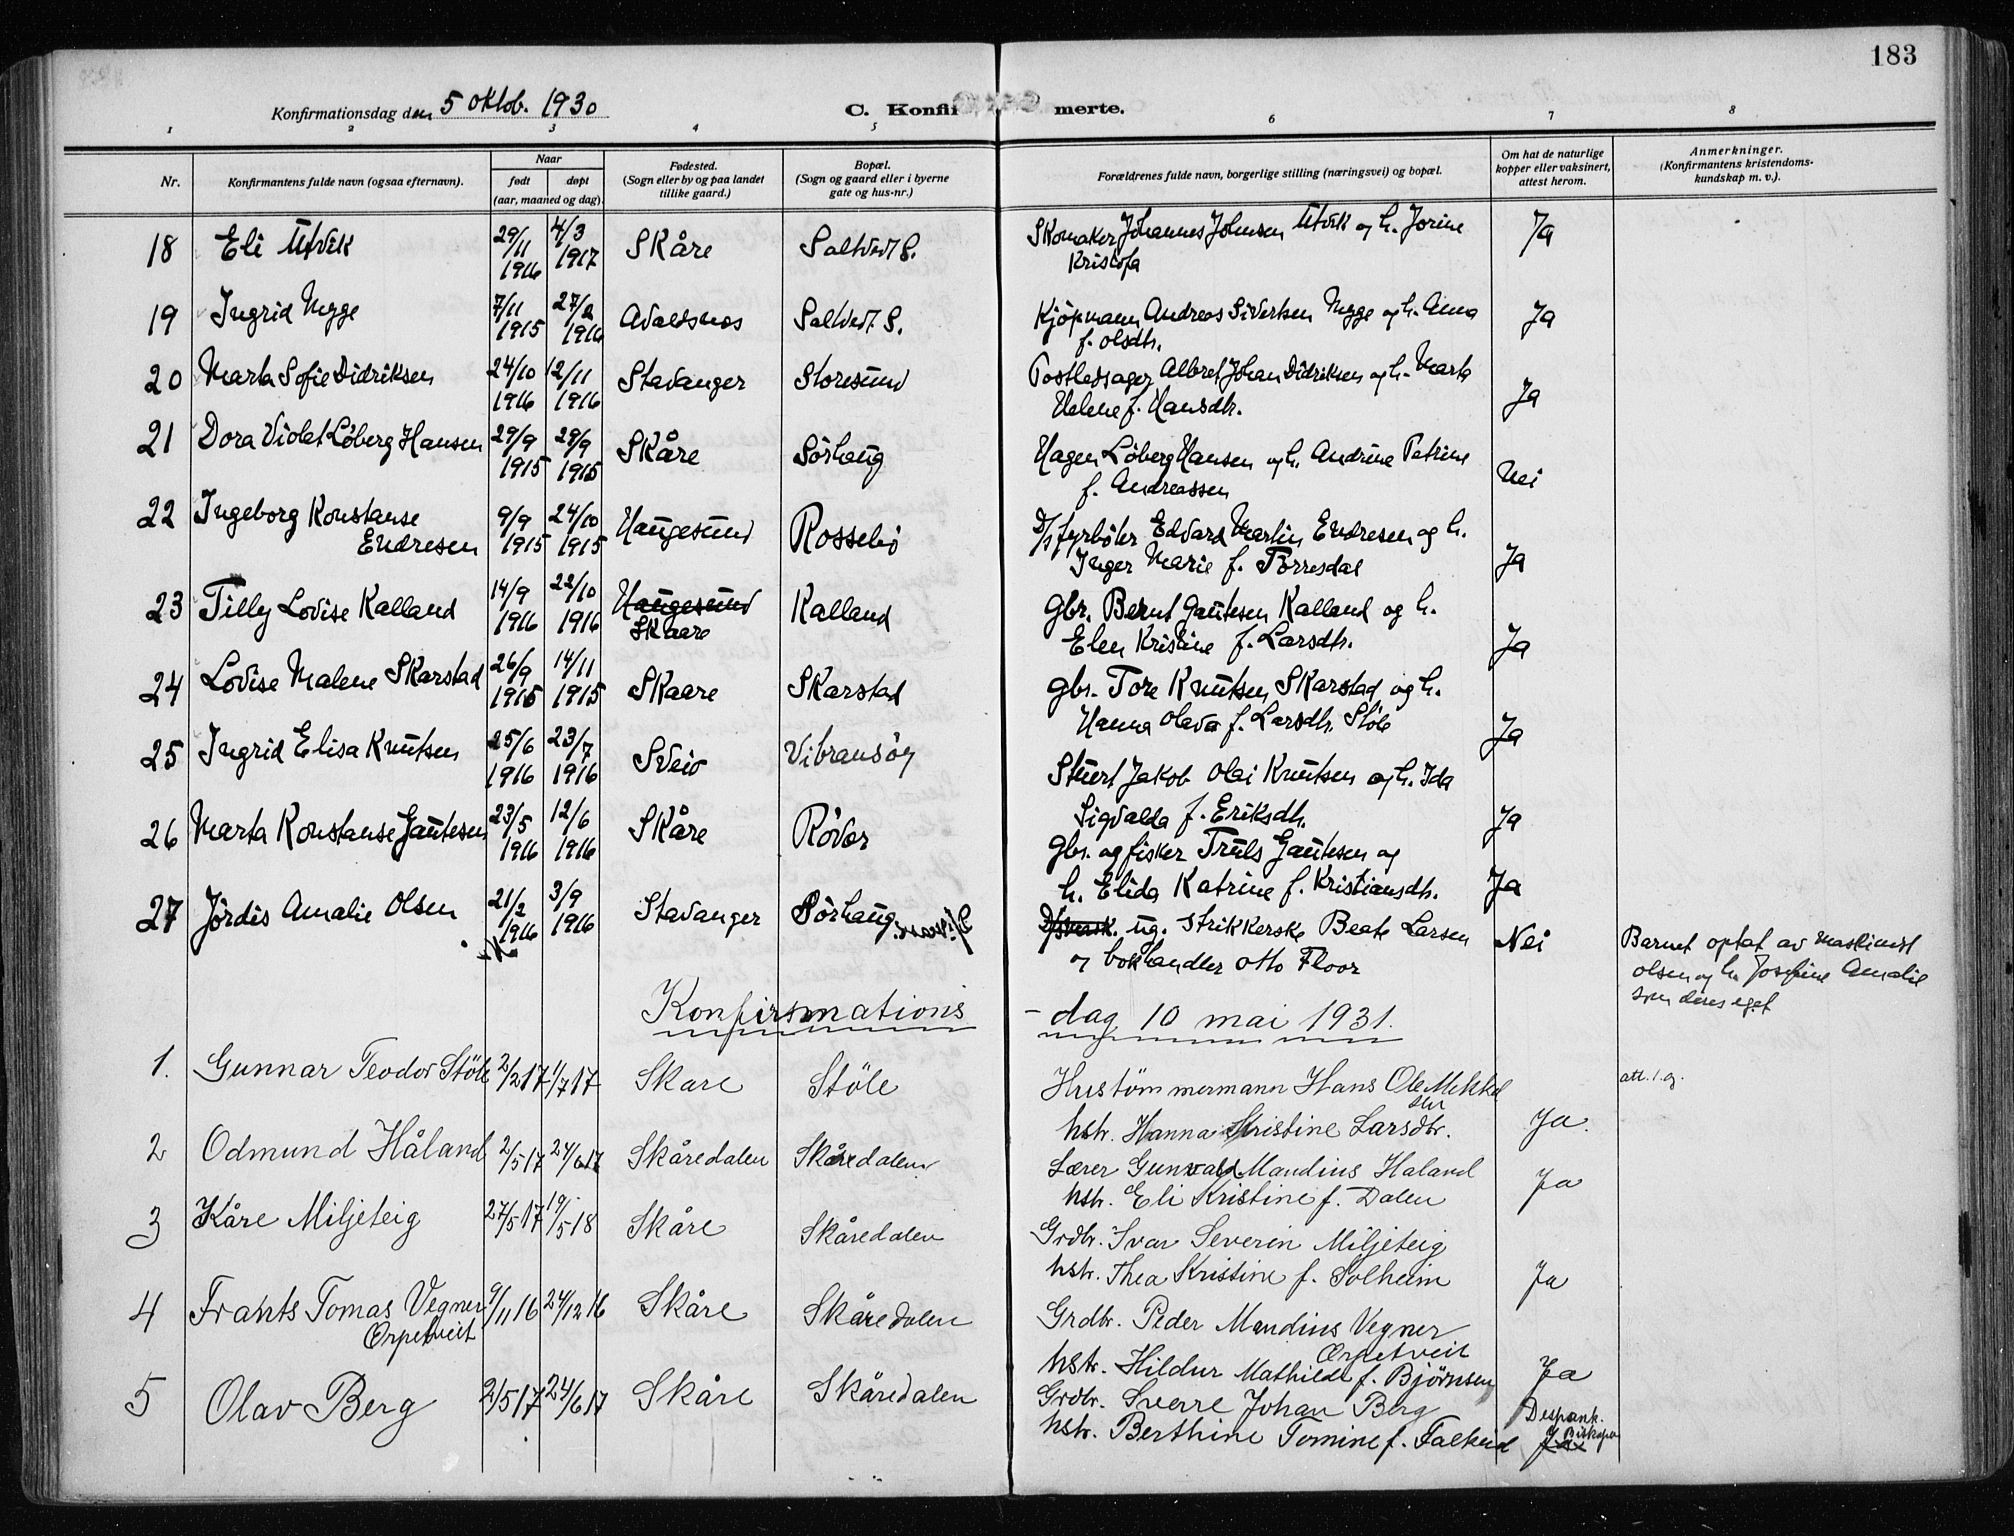 183
Konfirmationsdag den 5 oktob. 1930
C. Konfirmerte.
1 2 3 4 5 6 7 8
Nr. | Konfirmantens fulde navn (ogsaa efternavn). | Naar født døpt (aar, maaned og dag). | Fødested. (Sogn eller by og paa landet tillike gaard.) | Bopæl. (Sogn og gaard eller i byerne gate og hus-nr.) | Forældrenes fulde navn, borgerlige stilling (næringsvei) og bopæl. | Om hat de naturlige kopper eller vaksinert, attest herom. | Anmerkninger. (Konfirmantens kristendomskundskap m. v.).
18 Eli Utvik 29/11 1916 4/3 1917 Skåre Saltvedt S. Skomaker Johannes Johnsen Utvik og h. Jorine Kristofa Ja
19 Ingrid Nygge 7/11 1915 27/2 1916 Avaldsnes Saltvedt S. Kjøpmann Andreas Sivertsen Nygge og h. Anna f. Olsdtr. Ja
20 Marta Sofie Didriksen 24/10 1916 12/11 1916 Stavanger Storesund Postledsager Albret Johan Didriksen og h. Marta Helene f. Hansdtr. Ja
21 Dora Violet Løberg Hansen 29/9 1915 29/9 1915 Skåre Sørhaug Hagen Løberg Hansen og h. Andrine Petrine f. Andreassen Nei
22 Ingeborg Konstanse Endresen 9/9 1915 24/10 1915 Haugesund Rossebø D/s fyrbøter Edvard Martin Endresen og h. Inger Marie f. Torresdal Ja
23 Tilly Lovise Kalland 14/9 1916 22/10 1916 Haugesund Skaare Kalland Gbr. Bernt Gautesen Kalland og h. Elen Kristine f. Larsdtr. Ja
24 Lovise Malene Skarstad 26/9 1915 14/11 1915 Skaare Skarstad Gbr. Tore Knutsen Skarstad og h. Hanna Olava f. Larsdtr. Støle Ja
25 Ingrid Elisa Knutsen 25/6 1916 23/7 1916 Sveio Vibransøy Stuert Jakob Olai Knutsen og h. Ida Sigvalda f. Eriksdtr. Ja
26 Marta Konstanse Gautesen 23/5 1916 12/6 1916 Skåre Røvær Gbr. og fisker Truls Gautesen og h. Elida Katrine f. Kristiansdtr. Ja
27 Jórdis Amalie Olsen 21/2 1916 3/9 1916 Stavanger Sørhaug ug. strikkerske Beate Larsen og bokhandler Otto Floor Nei Barnet optat av maskinist Olsen og h. Josefine Amalie som deres eget
Konfirmations - dag 10 mai 1931.
1. Gunnar Teodor Støle 2/2 17 1/7 17 Skare Støle Hustømmermann Hans Ole Mekkel sen hstr. Hanna Kristine Larsdtr. Ja. att. l. g.
2 Odmund Håland 2/5 17 24/6 17 Skåredalen Skåredalen Lærer Gunvald Mandius Haland hstr. Eli Kristine f. Dalen Ja
3 Kåre Miljeteig 27/5 17 19/5 18 Skåre Skåredalen Grdbr. Ivar Severin Miljeteig hstr. Thea Kristine f. Solheim Ja
4 Frants Tomas Vegner Ørpetveit 9/11 16 24/12 16 Skåre Skåredalen Grdbr. Peder Mandius Vegner Ørpetveit hstr. Hildur Mathilde f. Bjørnsen Ja
5 Olav Berg 2/5 17 24/6 17 Skåre Skåredalen Grdbr. Sverre Johan Berg hstr. Berthine Tomine f. Falkeid Ja